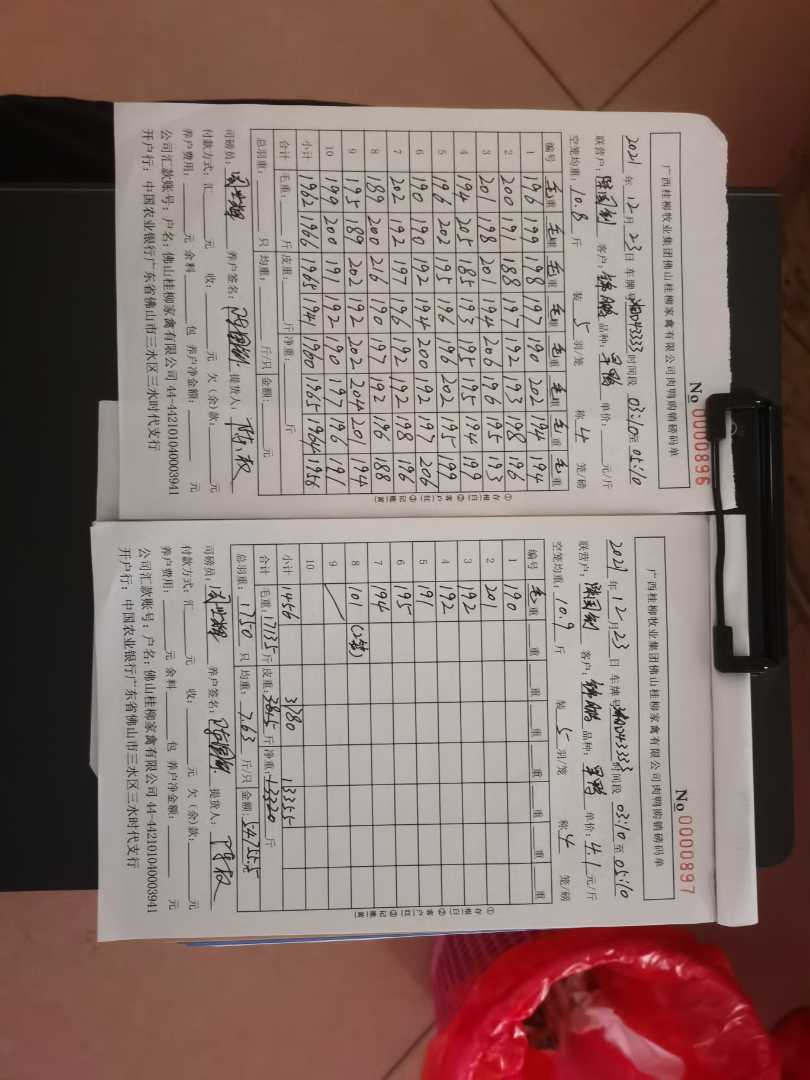 广西桂柳牧业集团佛山桂柳家禽有限公司肉鸭购销磅码单
№ 0000896
2021年12月23日 车牌号 D43333 时间段 03:10至05:10
联营户: 客户: 品种:旱鸭 单价: 元/斤
空笼均重:10.8斤 装5羽/笼 称4笼/磅
编号 毛重 毛重 毛重 毛重 毛重 毛重 毛重 毛重
1 196 199 198 197 190 202 194 194
2 200 191 188 197 192 193 198 196
3 201 198 201 194 206 196 195 193
4 194 205 185 193 195 195 194 199
5 196 202 195 196 196 202 195 199
6 190 190 192 194 200 192 197 206
7 202 192 197 196 192 192 198 196
8 189 200 216 190 197 192 196 188
9 195 189 202 192 202 204 201 194
10 199 200 191 192 190 197 196 191
小计 1962 1966 1965 1941 1960 1965 1964 1956
合计 毛重: 斤 皮重: 斤 净重: 斤
总羽重: 只 均重: 斤/只 金额: 元
司磅员: 养户签名: 提货人:
付款方式:汇 元 收: 元 欠(余)款: 元
养户费用: 元 余料 包 养户净金额: 元
公司汇款账号:户名:佛山桂柳家禽有限公司 44-442101040003941
开户行:中国农业银行广东省佛山市三水区三水时代支行
①存根日 ②客户红 ③记账黄
广西桂柳牧业集团佛山桂柳家禽有限公司肉鸭购销磅码单
№ 0000897
2021年12月23日 车牌号 D43333 时间段 03:10至05:10
联营户: 客户: 品种:旱鸭 单价:4.1元/斤
空笼均重:10.9斤 装5羽/笼 称4笼/磅
编号 毛重 重 重 重 重 重 重 重
1 190
2 201
3 192
4 192
5 191
6 195
7 194
8 101 (2笼)
9
10
小计 1456 3780 13355
合计 毛重:17135斤 皮重:3815斤 净重:13320斤
总羽重:1750只 均重:7.63斤/只 金额:54755.5
司磅员: 养户签名: 提货人:
付款方式:汇 元 收: 元 欠(余)款: 元
养户费用: 元 余料 包 养户净金额: 元
公司汇款账号:户名:佛山桂柳家禽有限公司 44-442101040003941
开户行:中国农业银行广东省佛山市三水区三水时代支行
①存根日 ②客户红 ③记账黄